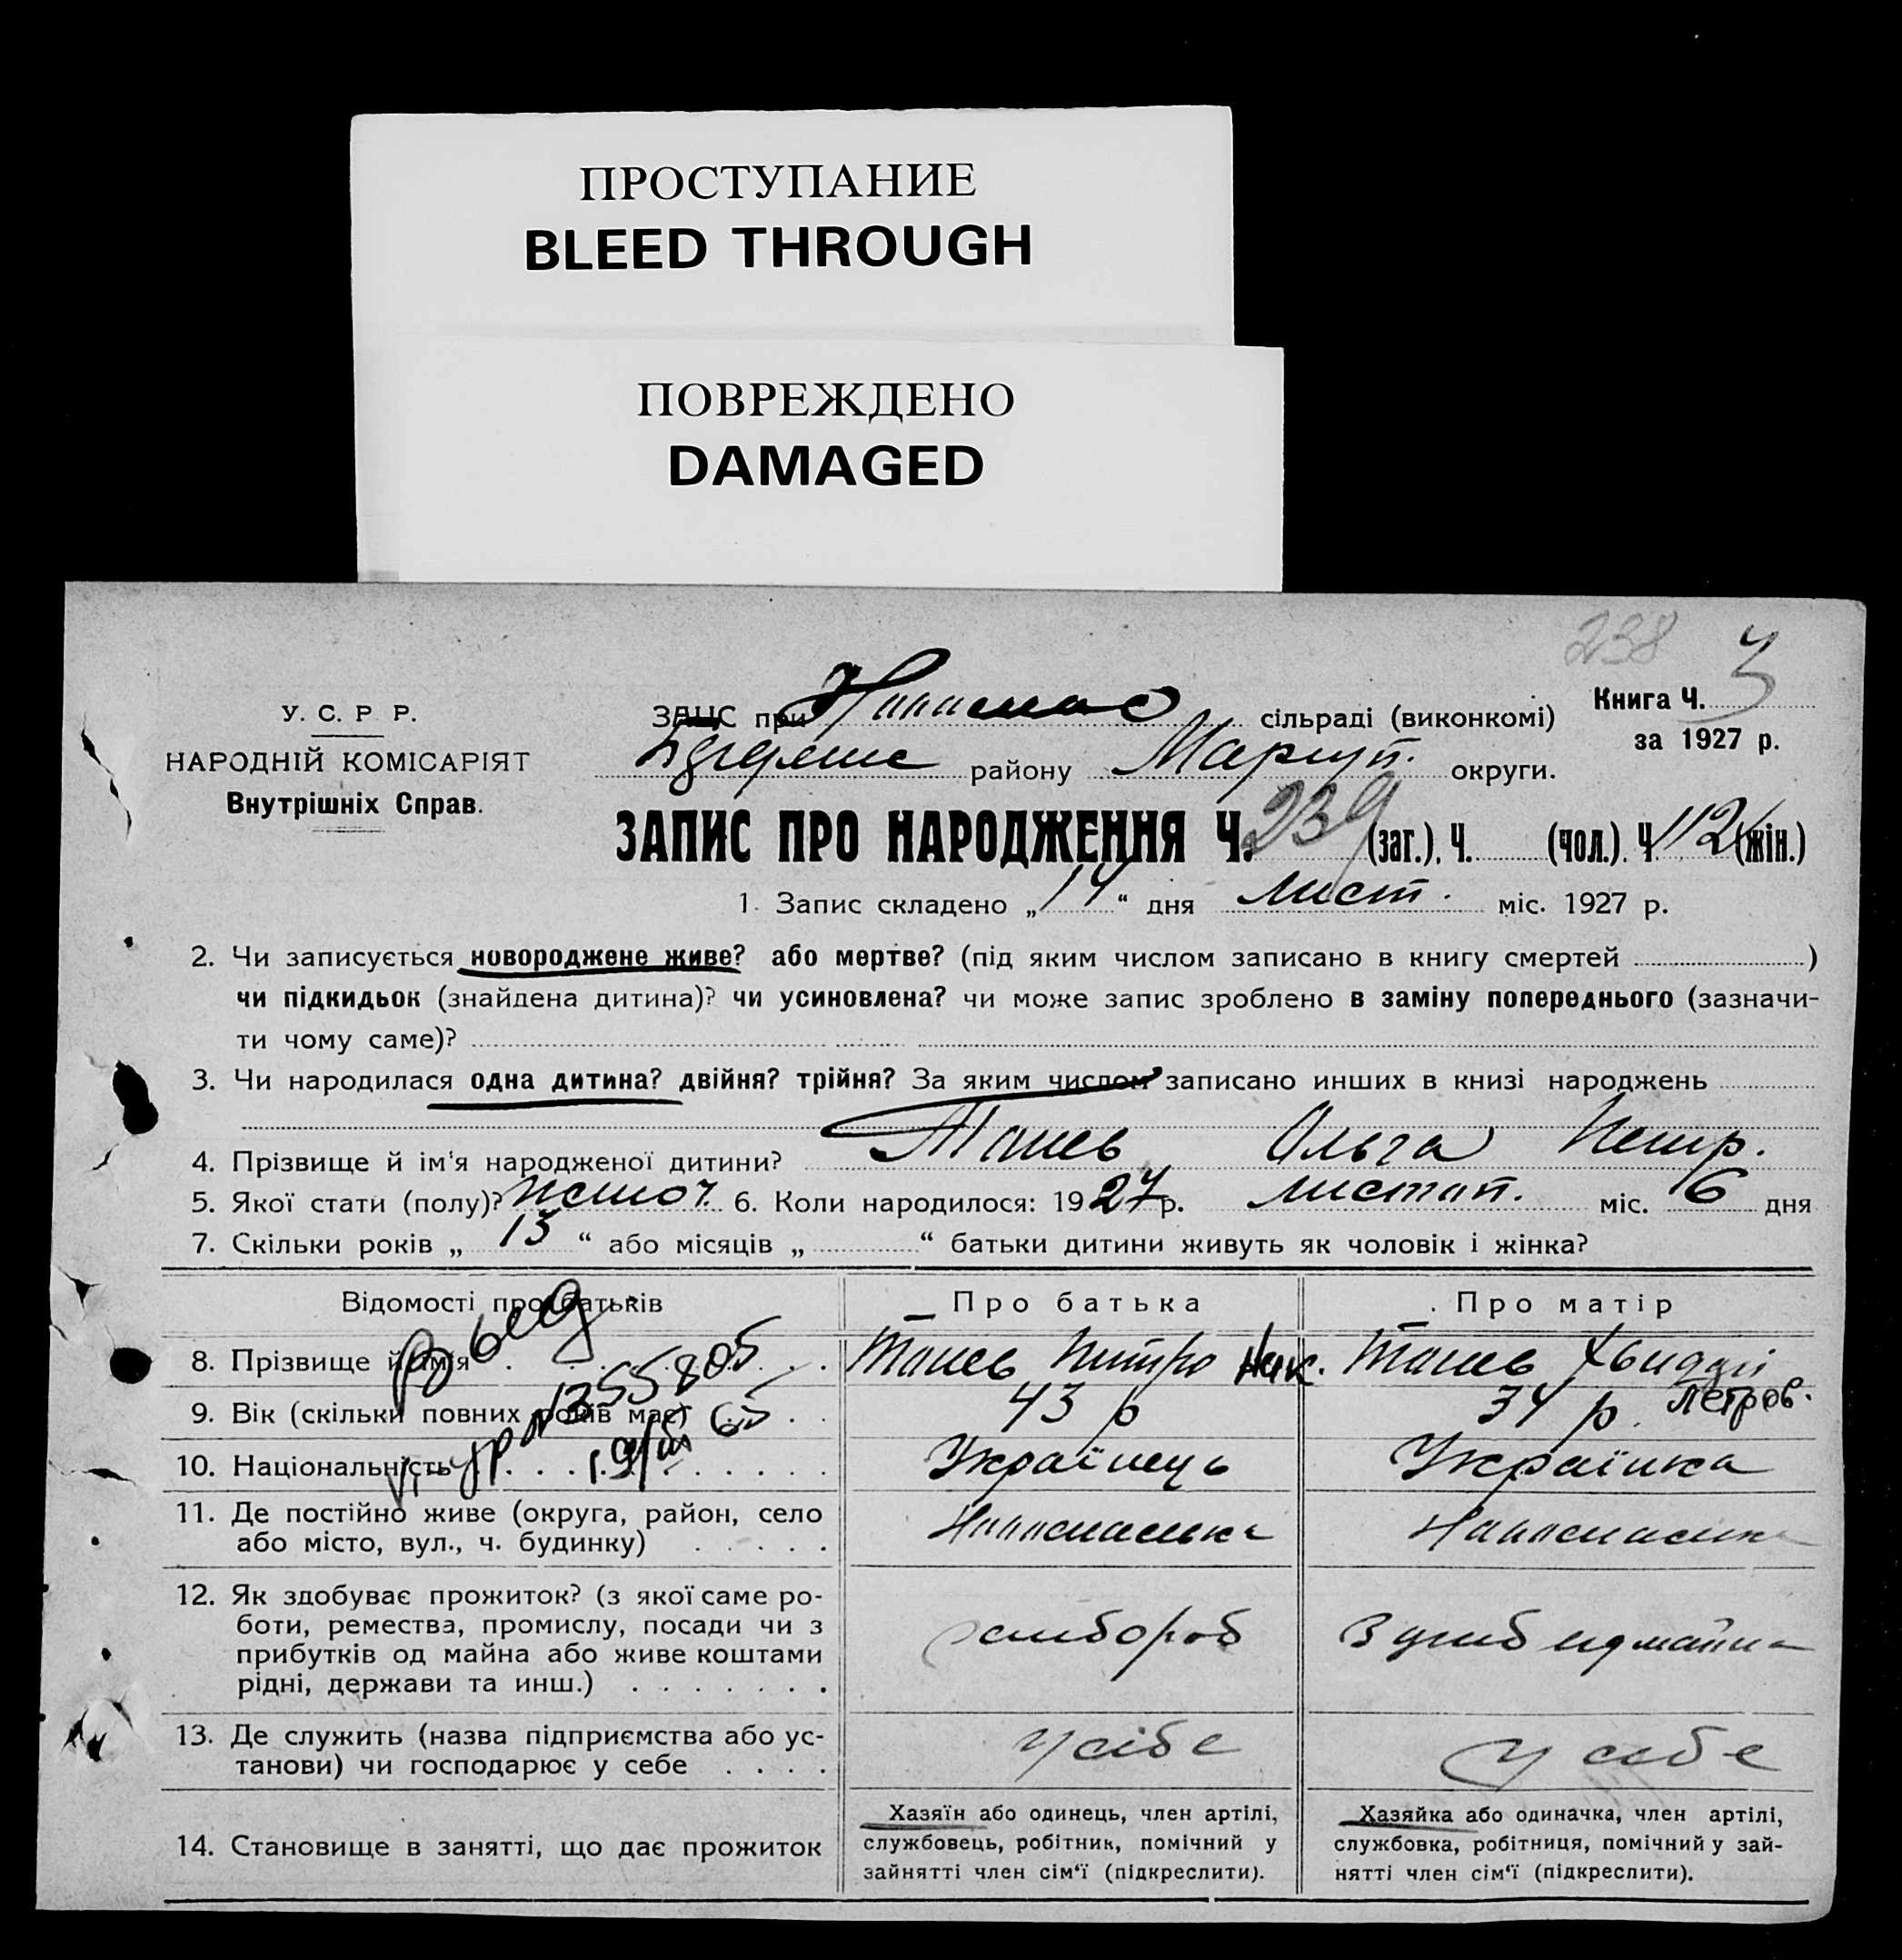 ПРОСТУПАНИЕ
BLEED THROUGH
ПОВРЕЖДЕНО
DAMAGED
238 3
У. С. Р Р.
НАРОДНІЙ КОМІСАРІЯТ
Внутрішніх Справ.
ЗАЦС при сільраді (виконкомі)
району Маріуп. округи.
Книга Ч.
за 1927 р.
ЗАПИС ПРО НАРОДЖЕННЯ Ч. 239 (заг.). Ч. (чол.). Ч. 112 (жін.)
1. Запис складено „14“ дня лист. міс. 1927 р.
2. Чи записується новороджене живе? або мертве? (під яким числом записано в книгу смертей )
чи підкидьок (знайдена дитина)? чи усиновлена? чи може запис зроблено в заміну попереднього (зазначи-
ти чому саме)?
3. Чи народилася одна дитина? двійня? трійня? За яким числом записано инших в книзі народжень
4. Прізвище й ім'я народженої дитини? Ольга Петр.
5. Якої стати (полу)? 6. Коли народилося: 1927 р. листоп. міс. 6 дня
7. Скільки років „13“ або місяців „ “ батьки дитини живуть як чоловік і жінка?
Відомості про батьків Про батька Про матір
8. Прізвище й ім'я Петро Ник.
Петров.
9. Вік (скільки повних років має) 43 р 34 р.
10. Національність Українець Українка
11. Де постійно живе (округа, район, село
або місто, вул., ч. будинку)
12. Як здобуває прожиток? (з якої саме ро-
боти, ремества, промислу, посади чи з
прибутків од майна або живе коштами
рідні, держави та инш.)
13. Де служить (назва підприємства або ус-
танови) чи господарює у себе у сібе у себе
14. Становище в занятті, що дає прожиток
Хазяїн або одинець, член артілі,
службовець, робітник, помічний у
зайнятті член сім‘ї (підкреслити).
Хазяйка або одиначка, член артілі,
службовка, робітниця, помічний у зай-
нятті член сім‘ї (підкреслити).